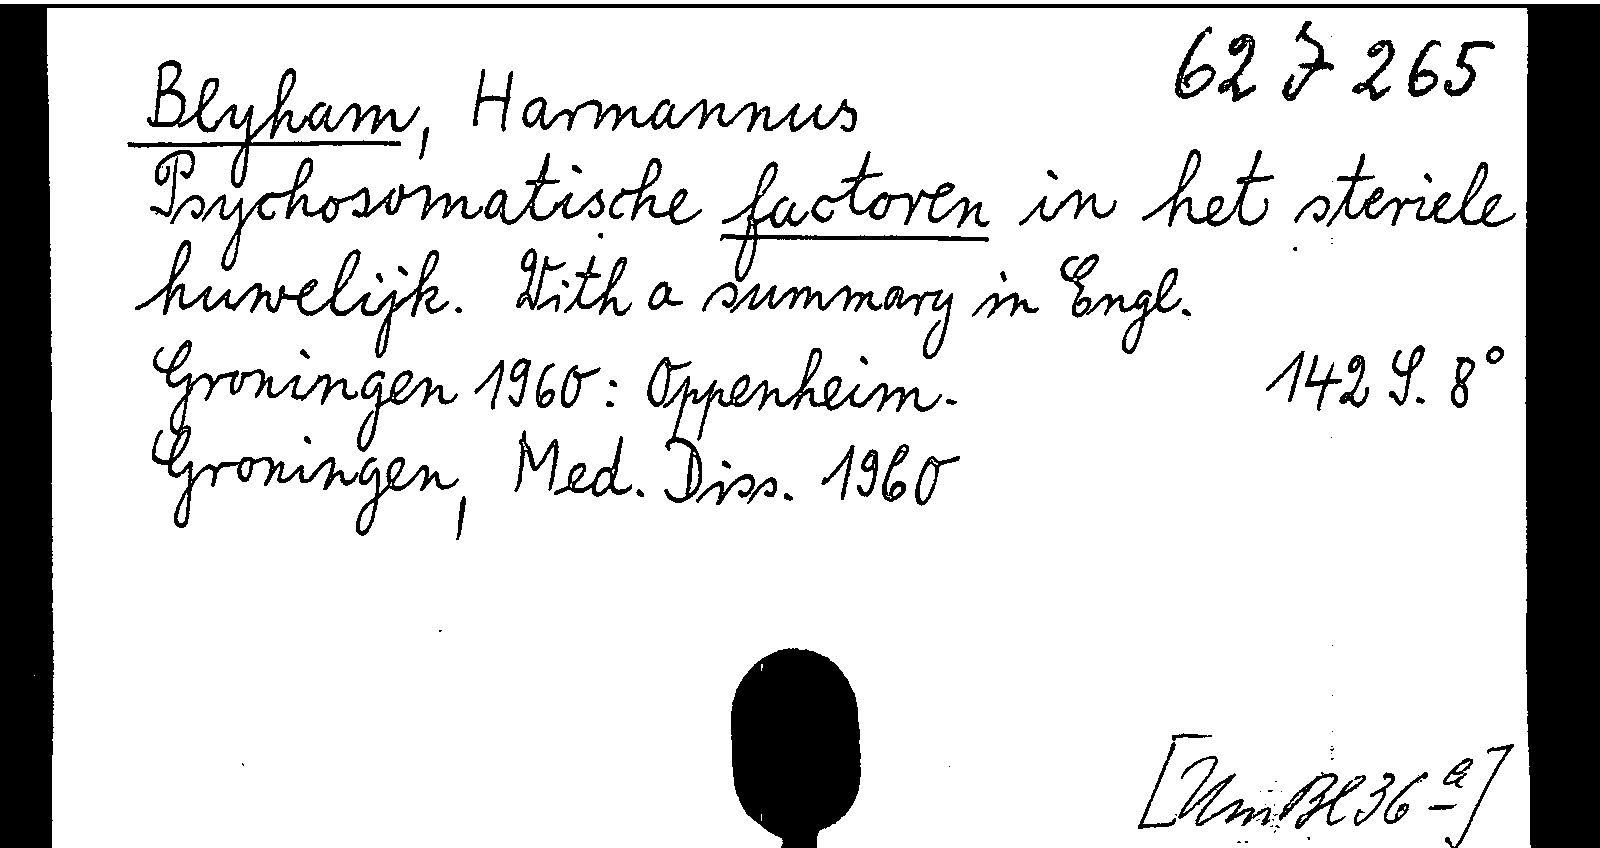 62 F 265
Blyham, Harmannus
Psychosomatische factoren in het steriele
huwelijk. With a summary in Engl.
Groningen 1960: Oppenheim. 142 S. 8°
Groningen, Med. Diss. 1960